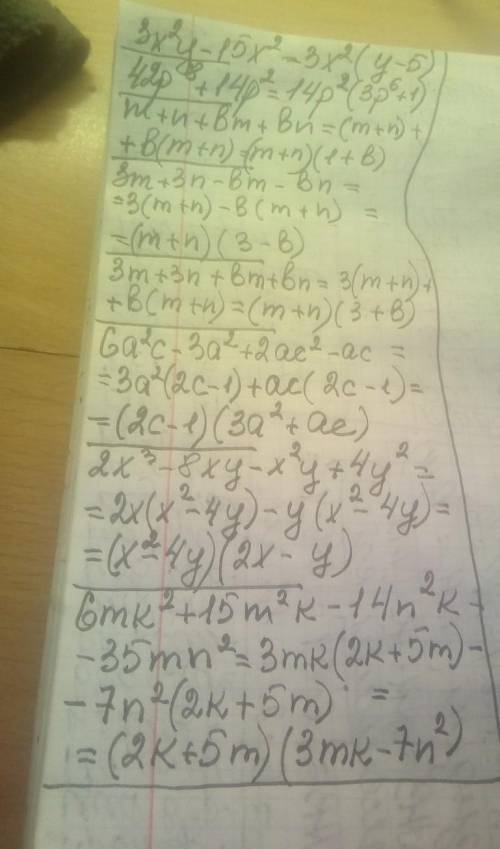 3x²y-15x²=3x²(y-5)
42p⁸+14p²=14p²(3p⁶+1)
m+n+вm+вn=(m+n)+
+в(m+n)=(m+n)(1+в)
3m+3n-вm-вn=
=3(m+n)-в(m+n) =
=(m+n)(3-в)
3m+3n+вm+вn=3(m+n)+
+в(m+n)=(m+n)(3+в)
6a²c-3a²+2ac²-ac=
=3a²(2c-1)+ac(2c-1)=
=(2c-1)(3a²+ac)
2x³-8xy-x²y+4y²=
=2x(x²-4y)-y(x²-4y)=
=(x²-4y)(2x-y)
6mk²+15m²k-14n²k-
-35mn²=3mk(2k+5m)-
-7n²(2k+5m) =
=(2k+5m)(3mk-7n²)